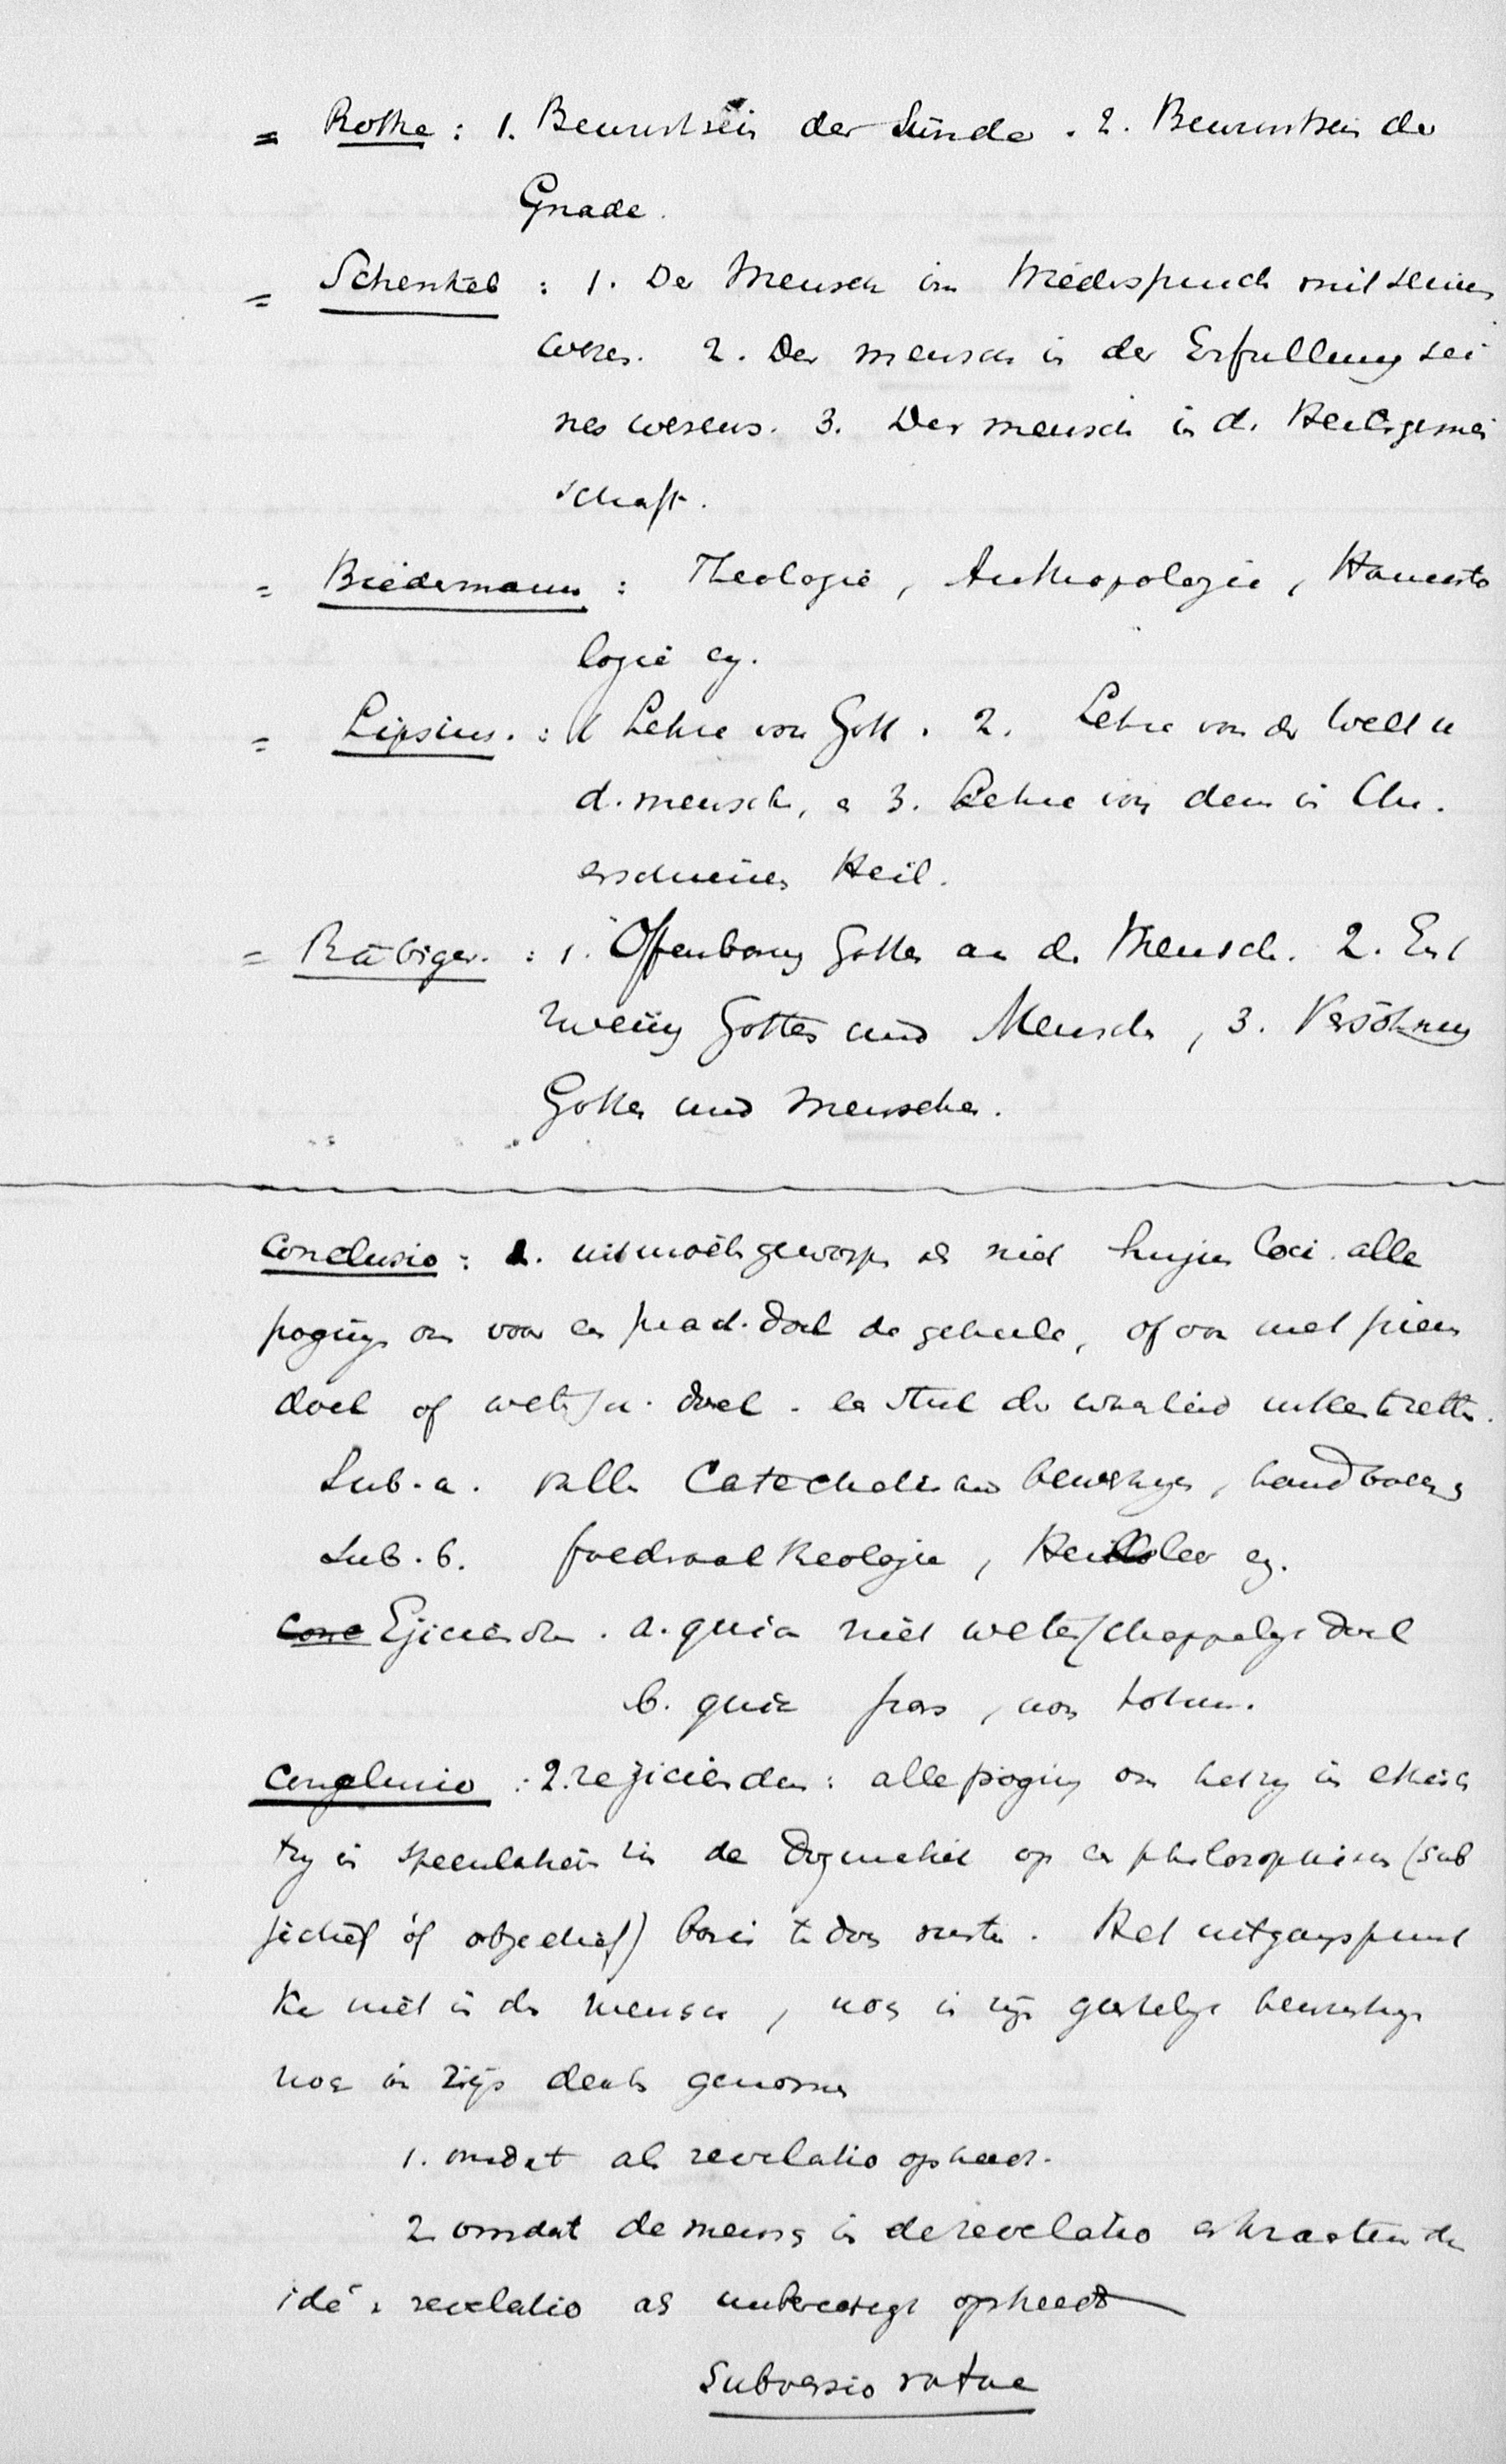 = Rothe : 1. Bewustsein der Sünde . 2. Bewustsein der
Gnade.
= Schenkel : 1. Der Mensch im Wiederspruch mit seinem
wesen. 2. Der mensch in der Erfullung sei
nes wesens. 3. Der mensch in d. Heilsgemei
schaft.
= Biedermann : Theologie, Anthropologie,
logie
= Lipsius. : 1 Lehre von Gott . 2. Lehre von der Welt u
d. mensch, 3. Lehre von dem in Chr.
erschienen Heil.
= Räbiger. : 1. Offenbarung Gottes an d. Mensch. 2. Ent
zweiung Gottes und Mensch, 3. Versöhnung
Gottes und Menschen.
Conclusio : 1. uit moet geworpen als niet hujus loci alle
pogingen om voor een pract. doel de geheele, of om met
doel of wetensch. doel een stuk der waarheid uiteen te zetten.
Sub. a. valle Catechetische bewerkingen, handboeken
Sub. b. foedraaltheologie,
Ejicienda . a. quia niet wetenschappelijk doel
b. quia pars, non totum.
Conclusio : 2. rejicienda : alle poging om hetzij in ethisch
tzij in speculatieven zin de Dogmatiek op een philosophischen (sub
jectief óf objectief) basis te doen rusten. Het uitgangspunt
kan niet in den mensch, noch in zijn geestelijke bewerking
noch in zijn denken genomen
1. omdat als revelatio opheft.
2 omdat de mensch in de revelatio
idé revelatio als opheft
Subversio naturae